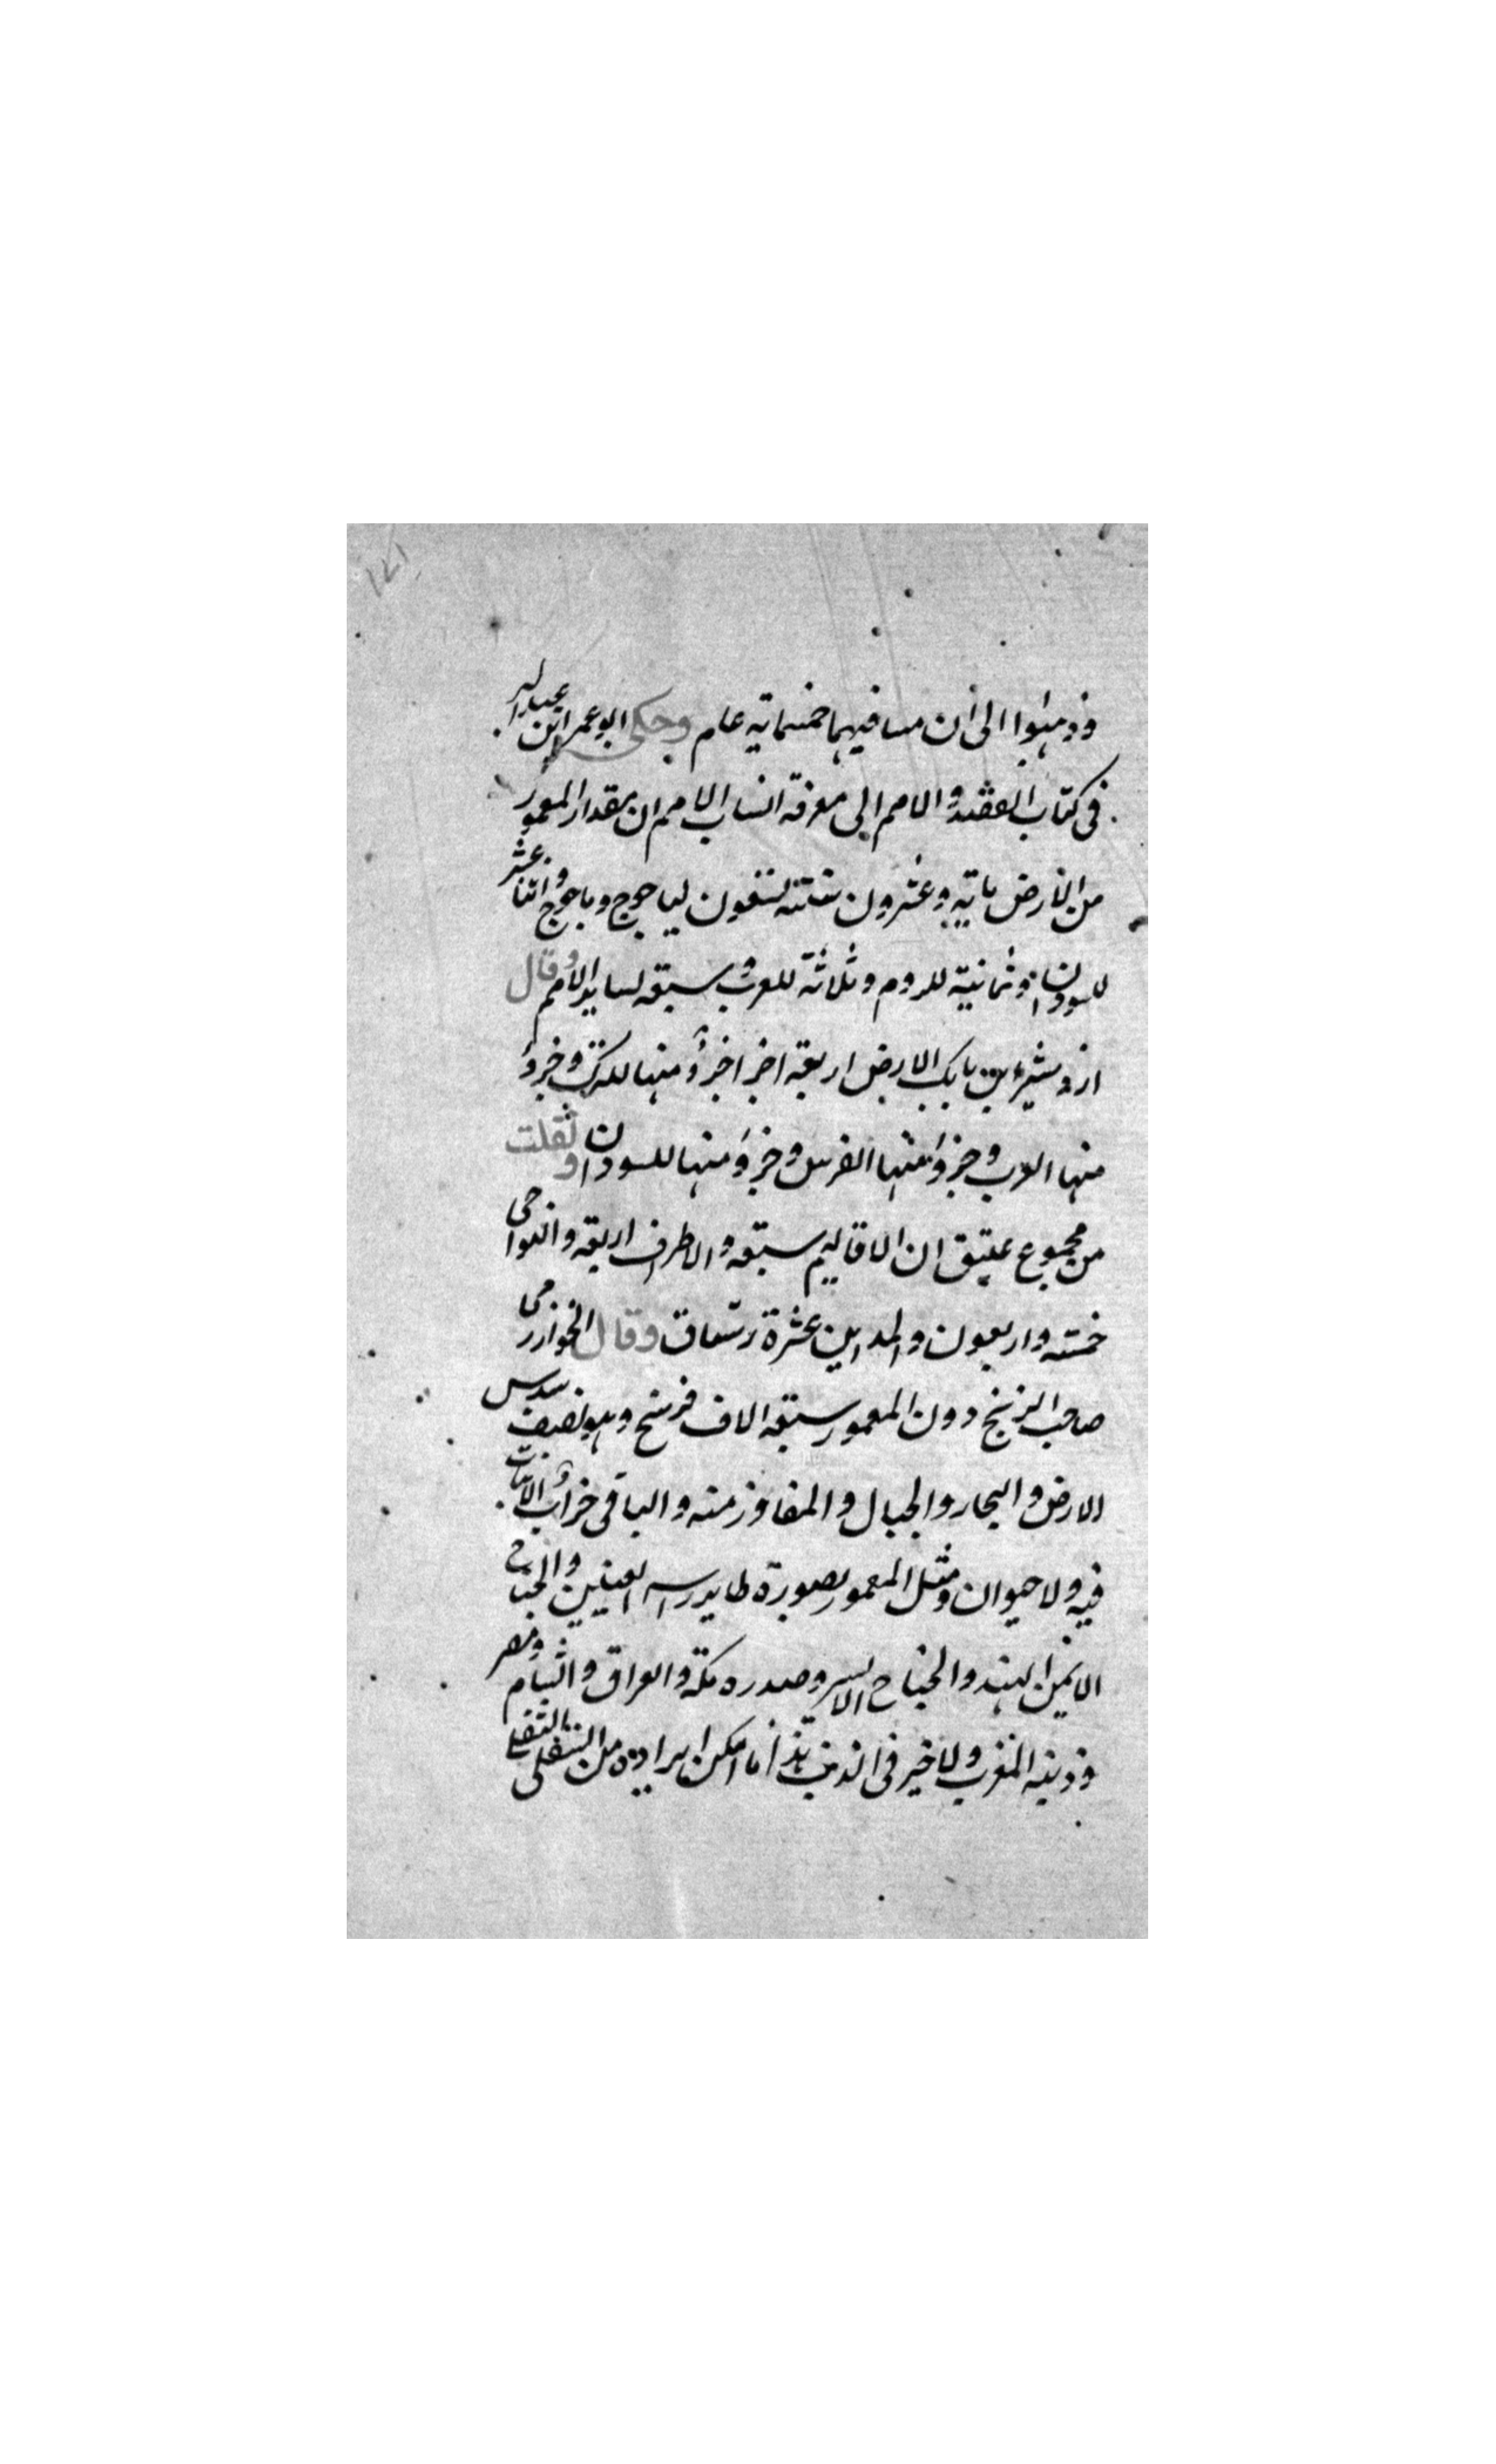 وذهبوا الى ان مسافيهما خمسماية عام وحكى ابو عمر ابن عبد البر
فى كتاب العقد والامم الى معرفة انساب الامم ان مقدار المعمور
من الارض ماية وعشرون سنة تسعون لياجوج وماجوج واثنا عشر
للسودان وثمانية للروم وثلاثة للعرب وسبعة لساير الامم وقال
ازدشير بن بابك الارض اربعة اجزا جزأ منها للترك وجزؤ
منها العرب وجزؤ منها الفرس وجزؤ منها للسودان ونقلت
من مجموع عتيق ان الاقاليم سبعة والاطراف اربعة والنواحى
خمسة واربعون والمداين عشرة رستاق وقال الخوارزمى
صاحب الزنج دون المعمور سبعة الاف فرسخ وهو نصف سدس
الارض والبحار والجبال والمفاوز منه والباقى خراب لانبات
فيه ولا حيوان ومثل المعمور بصورة طاير راسه الصين والجناح
الايمن الهند والجناح الايسر وصدره مكة والعراق والشام ومصر
وذنبه المغرب ولا خير فى الذنب هذا ما امكن ايراده من النقلى